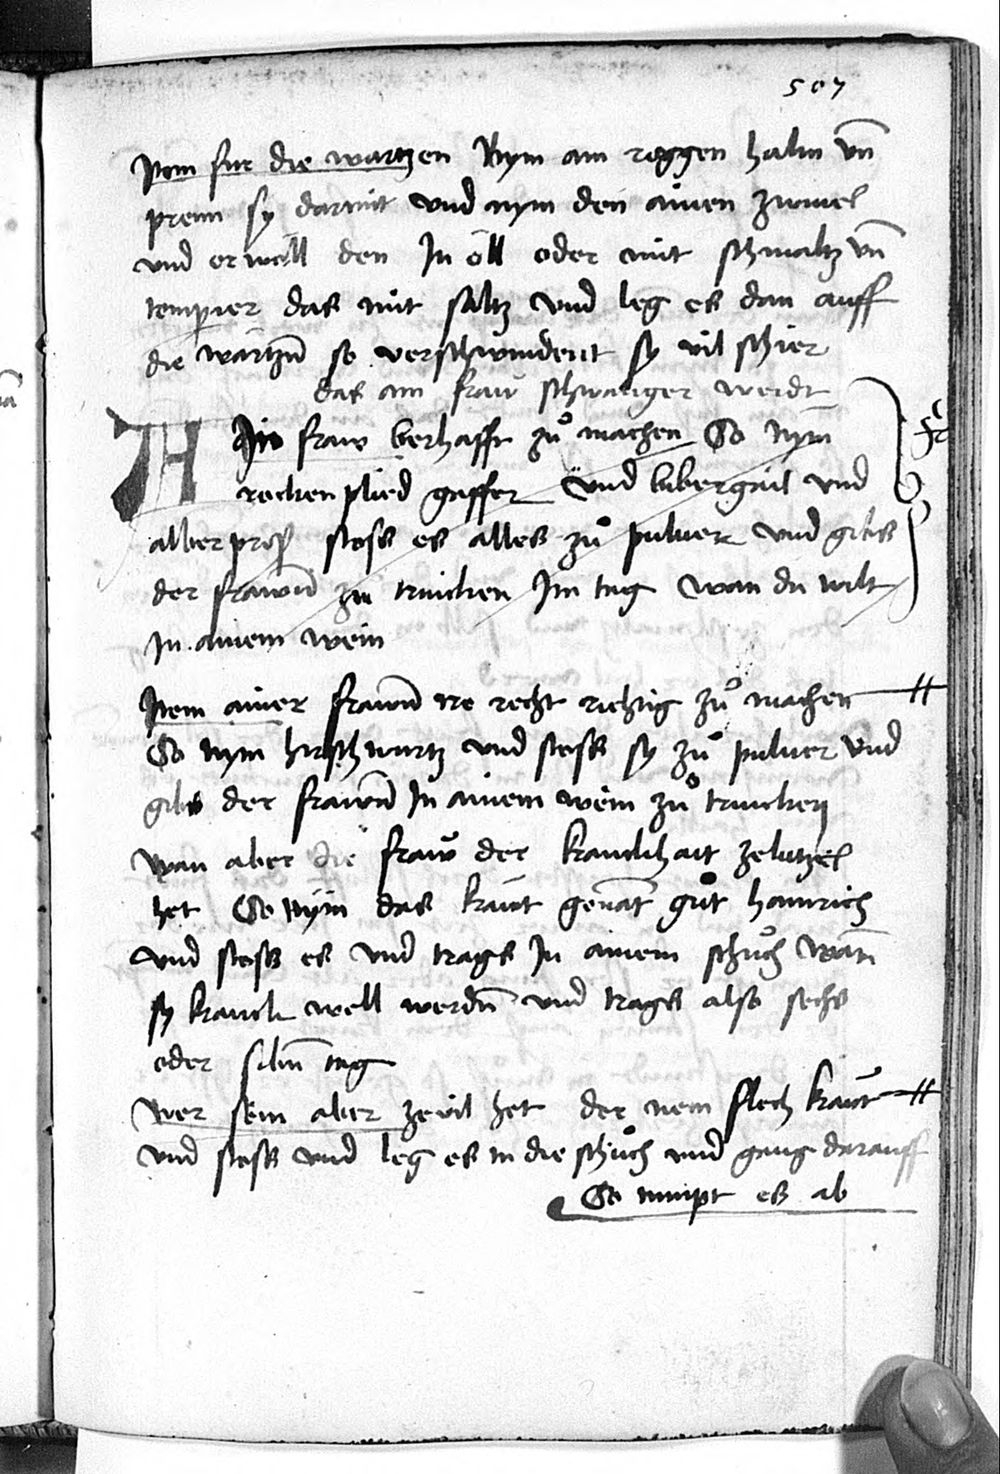 507
Itm fur die wartzen Nym ain roggen halm vn̄
prenn sy darmit vnd nym den ainen zwinel
vnd erwöll den In öll oder mit schmaltz vn̄
temperier das mit saltz vnd leg es dan auff
die wartzn̄ so verschwindent sy vil schier
das ain fraw schwanger werdt
Ain fraw berhafft zů machen So Nym
rocken plied gaffer vnd bibergail vnd
alber stoss es alles zů puluer vnd gibs
der frawn̄ zu trincken Im tag wan du wilt
In ainem wein
Item ainer frawn̄ ire recht richtig zů machen
So nym hirschwurtz vnd stoss sy zů puluer vnd
gibs der frawn̄ In ainem wein zů trincken
wan aber die fraw der kranckhait zelutzel
het So Nym das kraut genāt gůt hainrich
vnd stoss es vnd trags In ainem schůch wān
sy kranck well werdn̄ vnd trags also sechs
oder sibn̄ tag
wer sein aber zevil het der nem flech kraut
vnd stoss vnd leg es in die schůch vnd gang darauff
So nimpt es ab